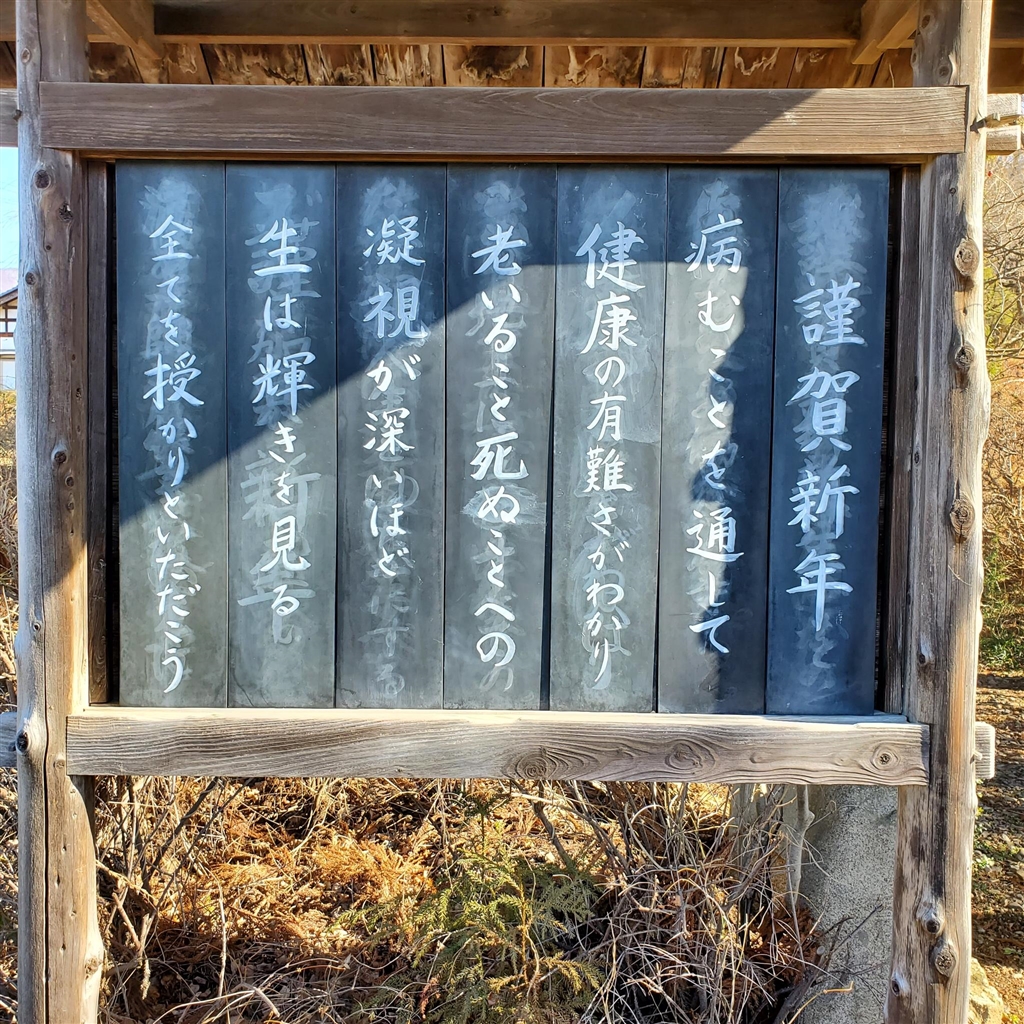 謹賀新年
病むことを通して
健康の有難さがわかり
老いること死ぬことへの
凝視が深いほど
生は輝きを見る
全てを授かりといただこう